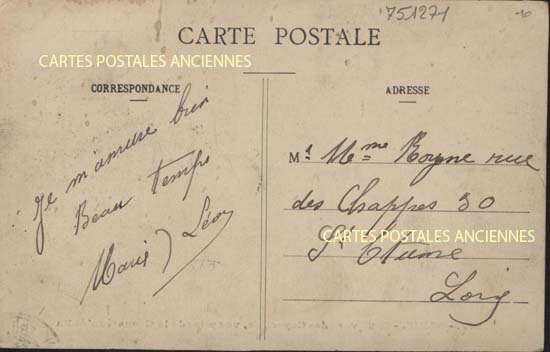 751271
CARTE POSTALE
CARTES POSTALES ANCIENNES
CORRESPONDANCE
Je m'amuse bien
Beau temps
Marie Léon
ADRESSE
Mr Mme Royne rue
des Chappes 30
CARTES POSTALES ANCIENNES
St Etienne
Loire